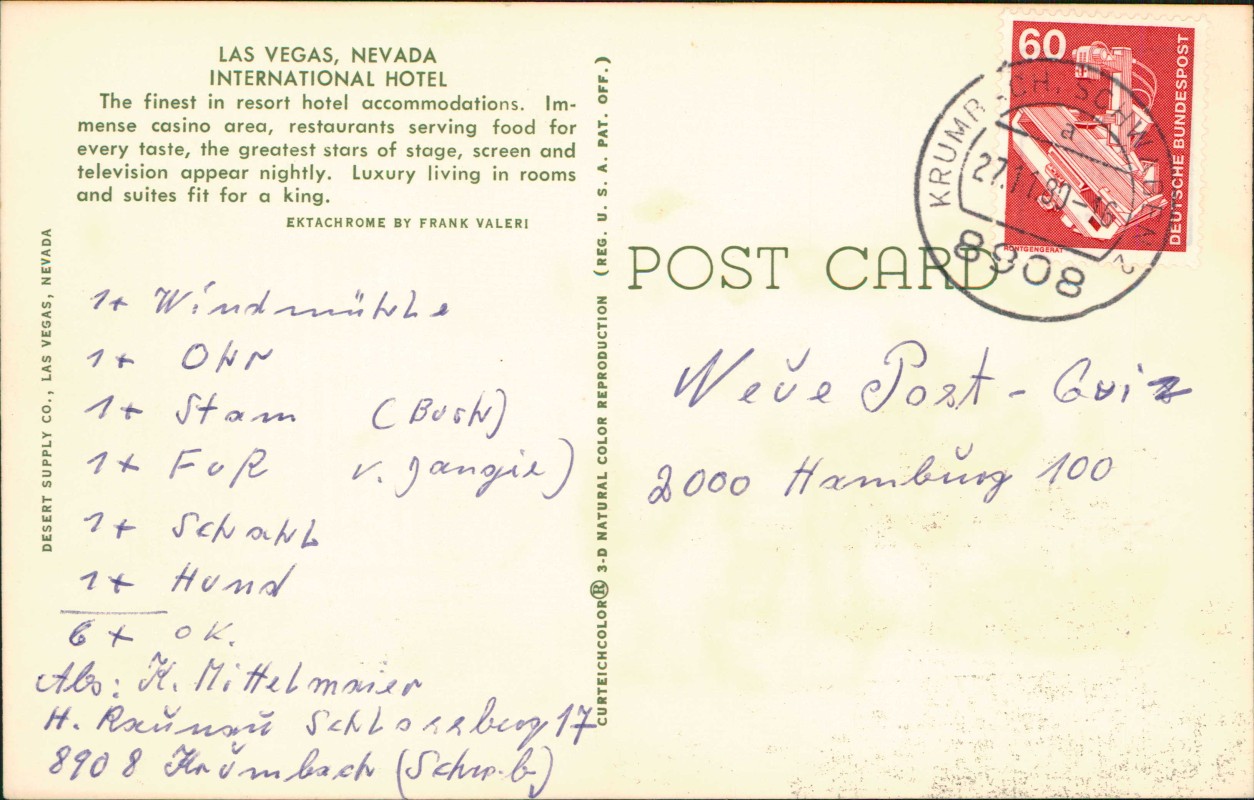 LAS VEGAS, NEVADA
INTERNATIONAL HOTEL
The finest in resort hotel accommodations. Im-
mense casino area, restaurants serving food for
every taste, the greatest stars of stage, screen and
television appear nightly. Luxury living in rooms
and suites fit for a king.
EKTACHROME BY FRANK VALERI
DESERT SUPPLY CO., LAS VEGAS, NEVADA
1x Windmühle
1x Ohr
1x Stam (Buch)
1x Fuß v. Jangie)
1x Schahl
1x Hund
6x OK.
Abs: K. Mittelmaier
H. Raunau Schlossberg 17
8908 Krumbach (Schwab)
CURTEICHCOLOR® 3-D NATURAL COLOR REPRODUCTION (REG. U. S. A. PAT. OFF.)
POST CARD
60
DEUTSCHE BUNDESPOST
RÖNTGENGERÄT
a
8908
2
Neue Post - Quiz
2000 Hamburg 100